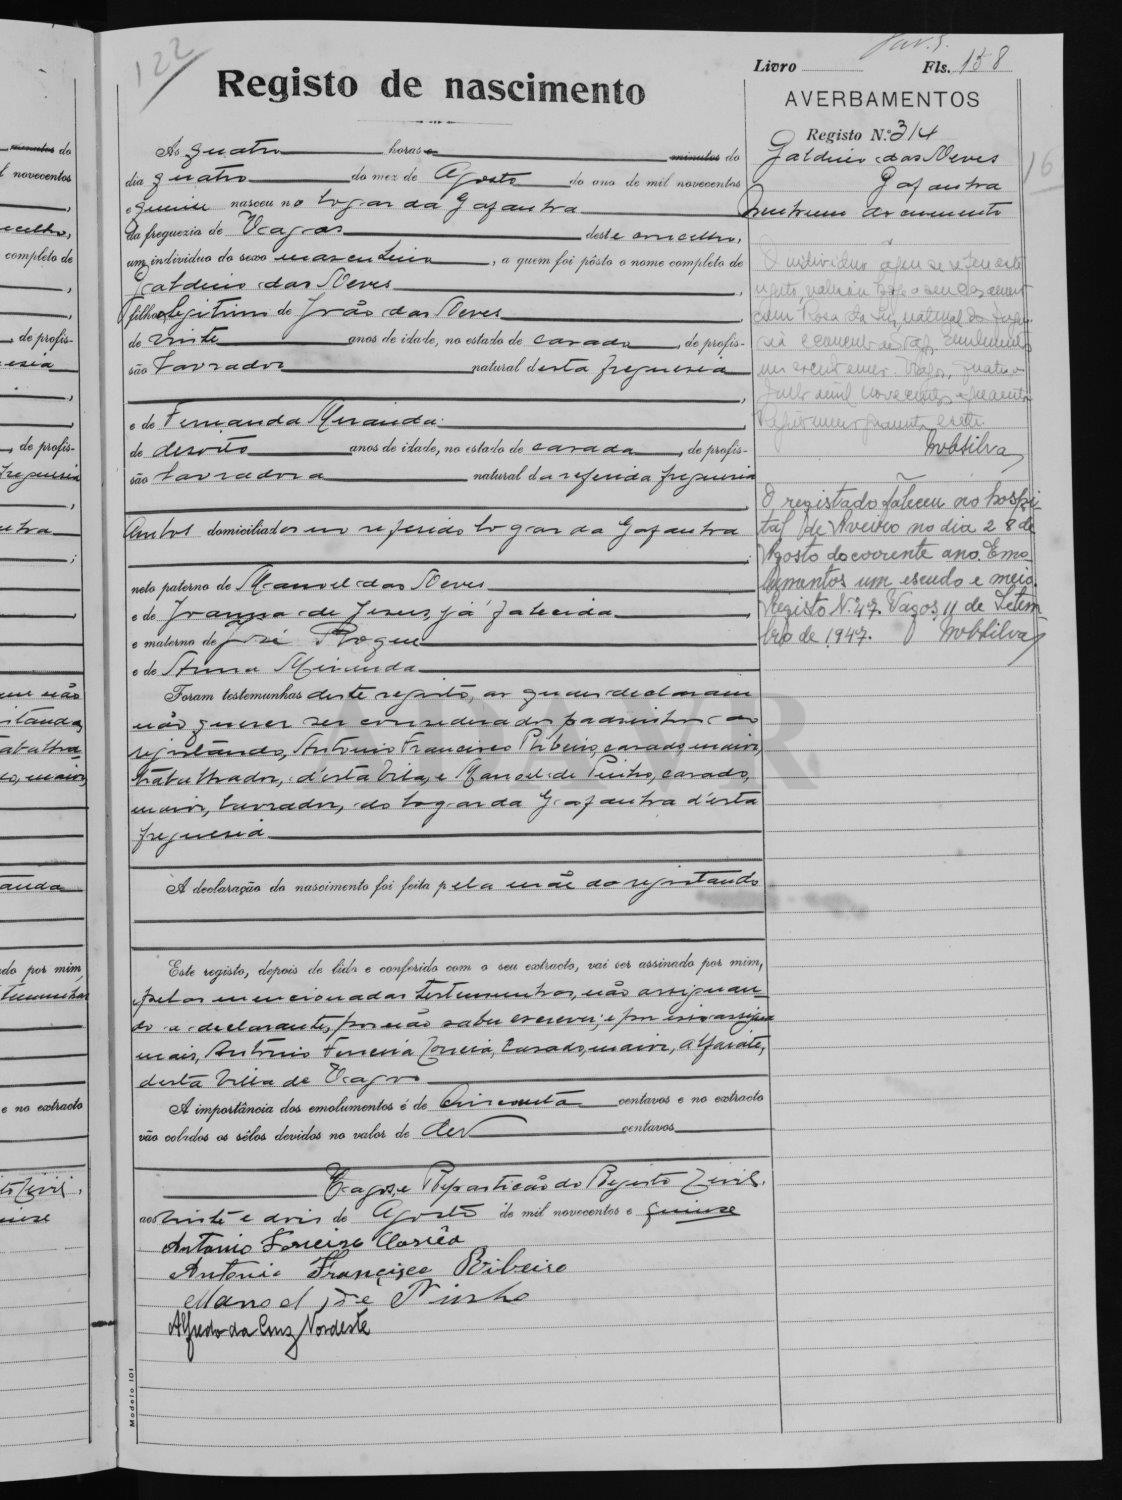 122
Registo de nascimento
Ás quatro horas e minutos do
dia quatro do mez de Agosto do ano de mil novecentos
e quinze nasceu no logar da Gafanha
da freguezia de Vagos deste concelho,
um individuo do sexo masculino, a quem foi pôsto o nome completo de
Galdino das Neves
filho legitimo de João das Neves
de vinte anos de idade, no estado de casado, de profis-
são Lavrador natural desta freguesia
e de Fernanda Miranda
de desoito anos de idade, no estado de casada, de profis-
são lavradora natural da referida freguesia
Ambos domiciliados no referido logar da Gafanha
neto paterno de Manoel das Neves
e de Joanna de Jesus, já falecida
e materno de José Roque
e de Anna Miranda
Foram testemunhas deste registo, as quaes declararam
não querer ser considerados padrinhos do
registando, António Francisco Ribeiro, casado, maior,
trabalhador, d'esta Vila, e Manoel de Pinho, casado,
maior, lavrador, do logar da Gafanha d'esta
freguesia
A declaração do nascimento foi feita pela mãe do registando
Este registo, depois de lido e conferido com o seu extracto, vai ser assinado por mim,
pelas mencionadas testemunhas, não assignan-
do a declarante, por não saber escrever; e por isso assigna
mais, António Ferreira Corrêa, casado, maior, alfaiate,
desta Villa de Vagos
A importância dos emolumentos é de cincoenta centavos e no extracto
vão colados os sêlos devidos no valor de dez centavos
Vagos, e Repartição do Registo Civil,
aos vinte e dois de Agosto de mil novecentos e quinze
Antonio Ferreira Corrêa
Antonio Francisco Ribeiro
Manoel de Pinho
Alfredo da Cruz Nordeste
Modelo 101
Livro Fls. 158
AVERBAMENTOS
Registo N.º 314
Galdino das Neves
Gafanha
Nenhum documento
16
O individuo a que se refere este
com Rosa da Luz, natural da
Julho mil novecentos e quarenta
O registado faleceu no hospi-
tal de Aveiro no dia 28 de
Agosto do corrente ano. Emo-
lumentos um escudo e meio.
Registo N.º 47. Vagos, 11 de Setem-
bro de 1947.
ADAVR